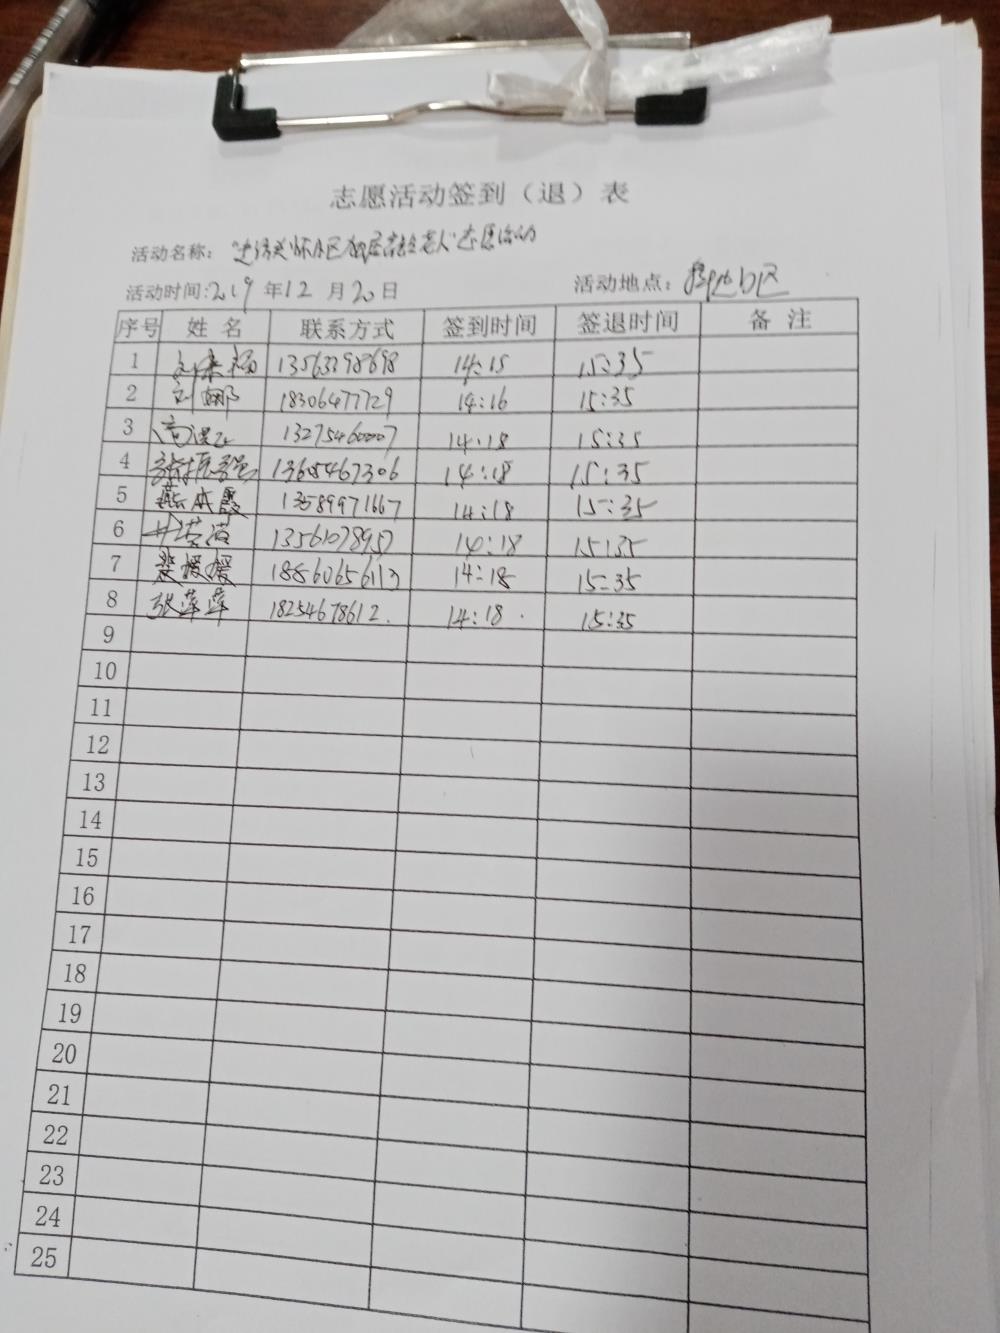 志愿活动签到（退）表
活动名称： 老人"志愿活动
活动时间：2019 年 12 月 20 日 活动地点：
序号 姓 名 联系方式 签到时间 签退时间 备 注
1 13563398698 14:15 15:35
2 刘娜 18306477729 14:16 15:35
3 13275460007 14:18 15:35
4 13605467306 14:18 15:35
5 燕本霞 13589971667 14:18 15:35
6 13561078957 14:18 15:35
7 媛媛 18860656113 14:18 15:35
8 张萍萍 18254678612. 14:18 15:35
9
10
11
12
13
14
15
16
17
18
19
20
21
22
23
24
25